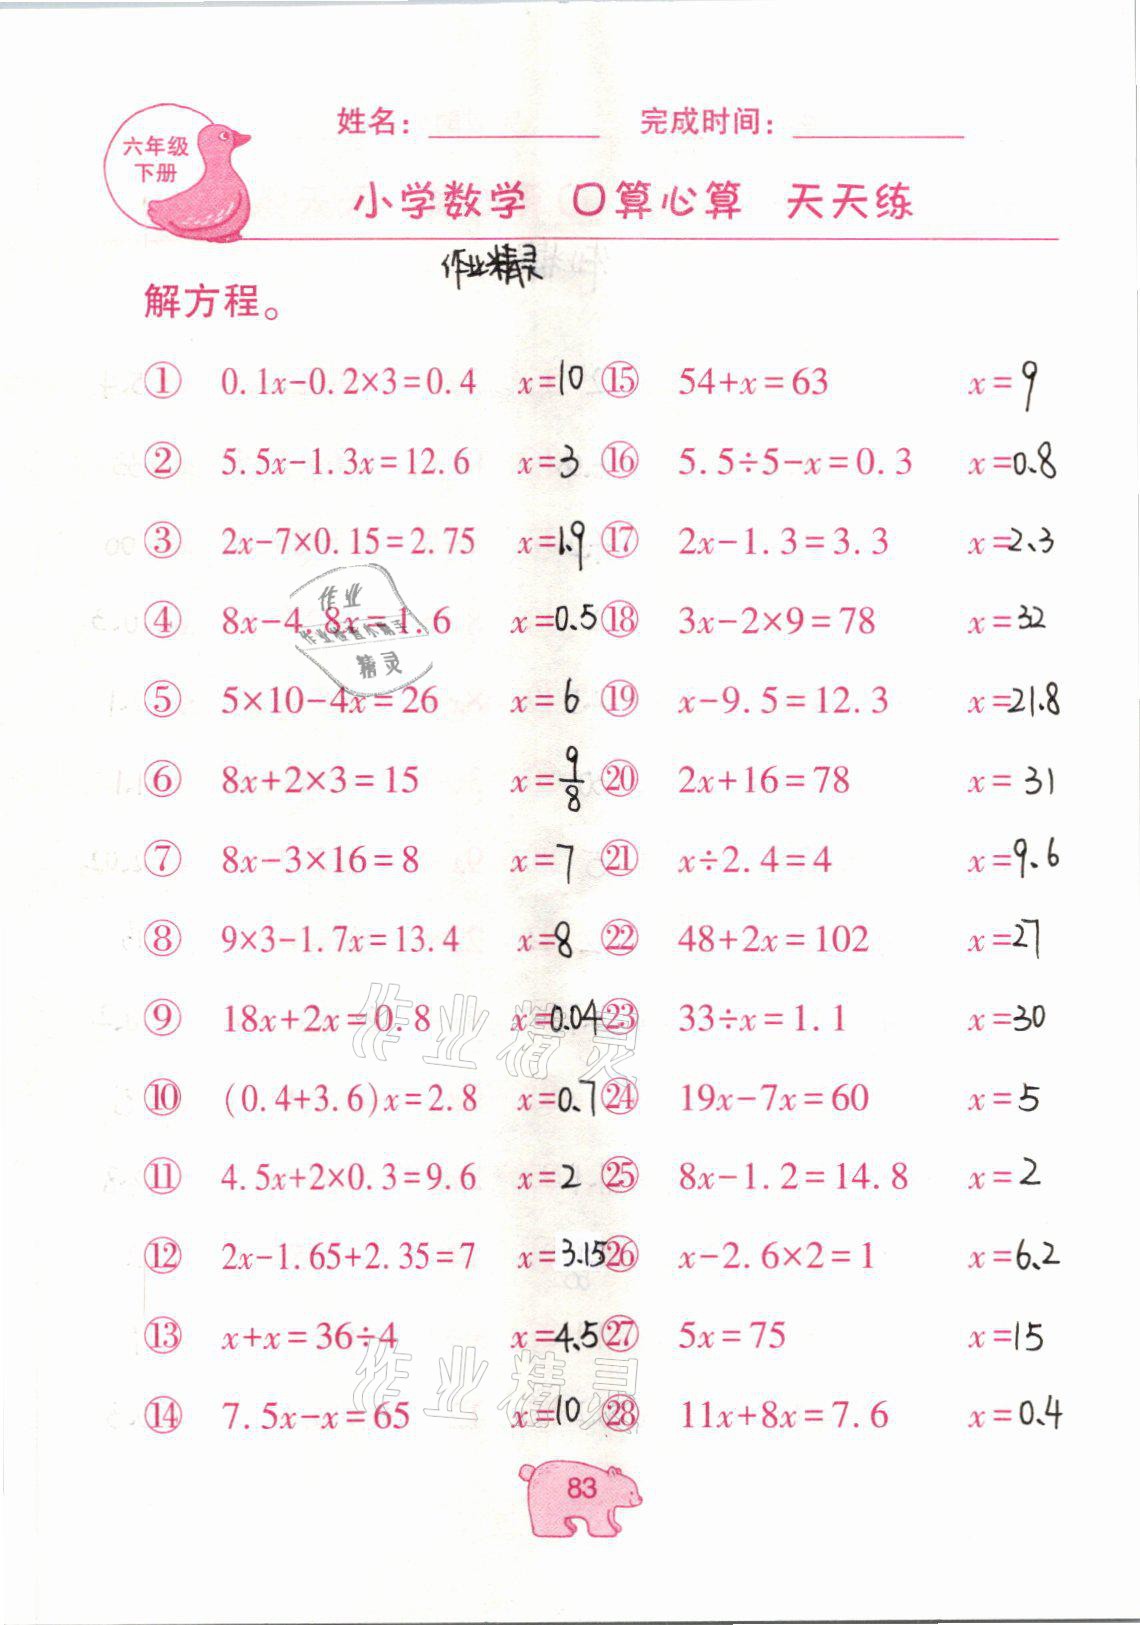 六年级
下册
姓名：
完成时间：
小学数学 口算心算 天天练
作业精灵
解方程。
① 0.1x-0.2×3=0.4 x=10 ⑮ 54+x=63 x=9
② 5.5x-1.3x=12.6 x=3 ⑯ 5.5÷5-x=0.3 x=0.8
③ 2x-7×0.15=2.75 x=1.9 ⑰ 2x-1.3=3.3 x=2.3
④ 8x-4.8x=1.6 x=0.5 ⑱ 3x-2×9=78 x=32
⑤ 5×10-4x=26 x=6 ⑲ x-9.5=12.3 x=21.8
⑥ 8x+2×3=15 x=9/8 ⑳ 2x+16=78 x=31
⑦ 8x-3×16=8 x=7 ㉑ x÷2.4=4 x=9.6
⑧ 9×3-1.7x=13.4 x=8 ㉒ 48+2x=102 x=27
⑨ 18x+2x=0.8 x=0.04 ㉓ 33÷x=1.1 x=30
⑩ (0.4+3.6)x=2.8 x=0.7 ㉔ 19x-7x=60 x=5
⑪ 4.5x+2×0.3=9.6 x=2 ㉕ 8x-1.2=14.8 x=2
⑫ 2x-1.65+2.35=7 x=3.15 ㉖ x-2.6×2=1 x=6.2
⑬ x+x=36÷4 x=4.5 ㉗ 5x=75 x=15
⑭ 7.5x-x=65 x=10 ㉘ 11x+8x=7.6 x=0.4
作业
精灵
作业精灵
作业精灵
83